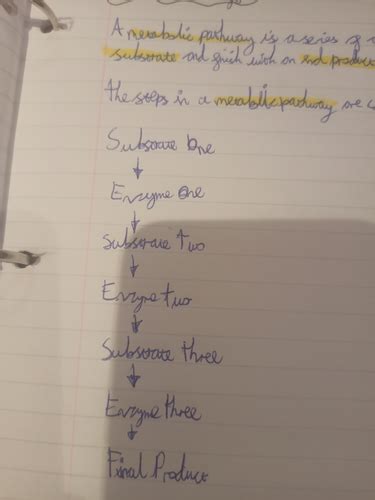 A metabolic pathway is a series of
substrate and finish with an end product
The steps in a metabolic pathway are
Substrate One
Enzyme One
Substrate two
Enzyme two
Substrate three
Enzyme three
Final Product